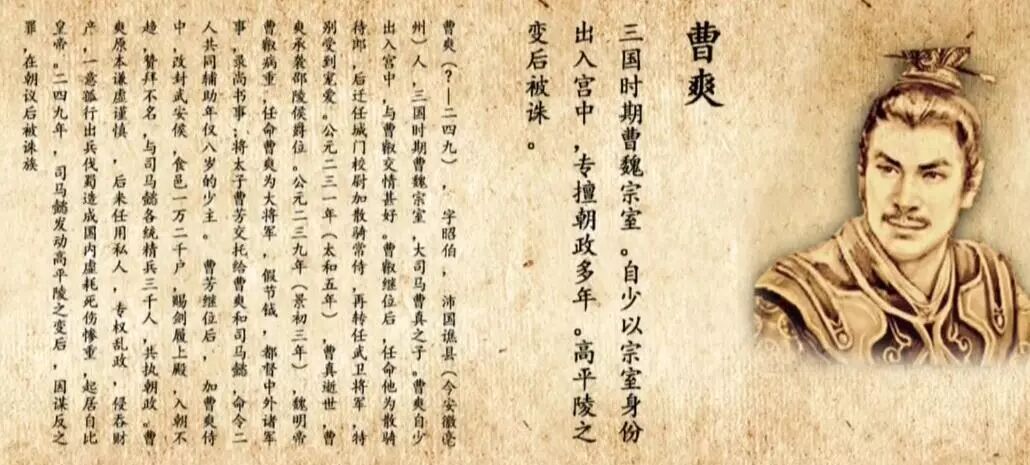 曹爽
三国时期曹魏宗室。自少以宗室身份
出入宫中，专擅朝政多年。高平陵之
变后被诛。
曹爽（？—二四九），字昭伯，沛国谯县（今安徽亳
州）人，三国时期曹魏宗室，大司马曹真之子。曹爽自少
出入宫中，与曹叡交情甚好。曹叡继位后，任命他为散骑
侍郎，后迁任城门校尉加散骑常侍，再转任武卫将军，特
别受到宠爱。公元二三一年（太和五年），曹真逝世，曹
爽承袭邵陵侯爵位。公元二三九年（景初三年），魏明帝
曹叡病重，任命曹爽为大将军，假节钺，都督中外诸军
事，录尚书事；将太子曹芳交托给曹爽和司马懿，命令二
人共同辅助年仅八岁的少主。 曹芳继位后，加曹爽侍
中，改封武安侯，食邑一万二千户，赐剑履上殿，入朝不
趋，赞拜不名，与司马懿各统精兵三千人，共执朝政。曹
爽原本谦虚谨慎，后来任用私人，专权乱政，侵吞财
产，一意孤行出兵伐蜀造成国内虚耗死伤惨重，起居自比
皇帝。二四九年，司马懿发动高平陵之变后，因谋反之
罪，在朝议后被诛族